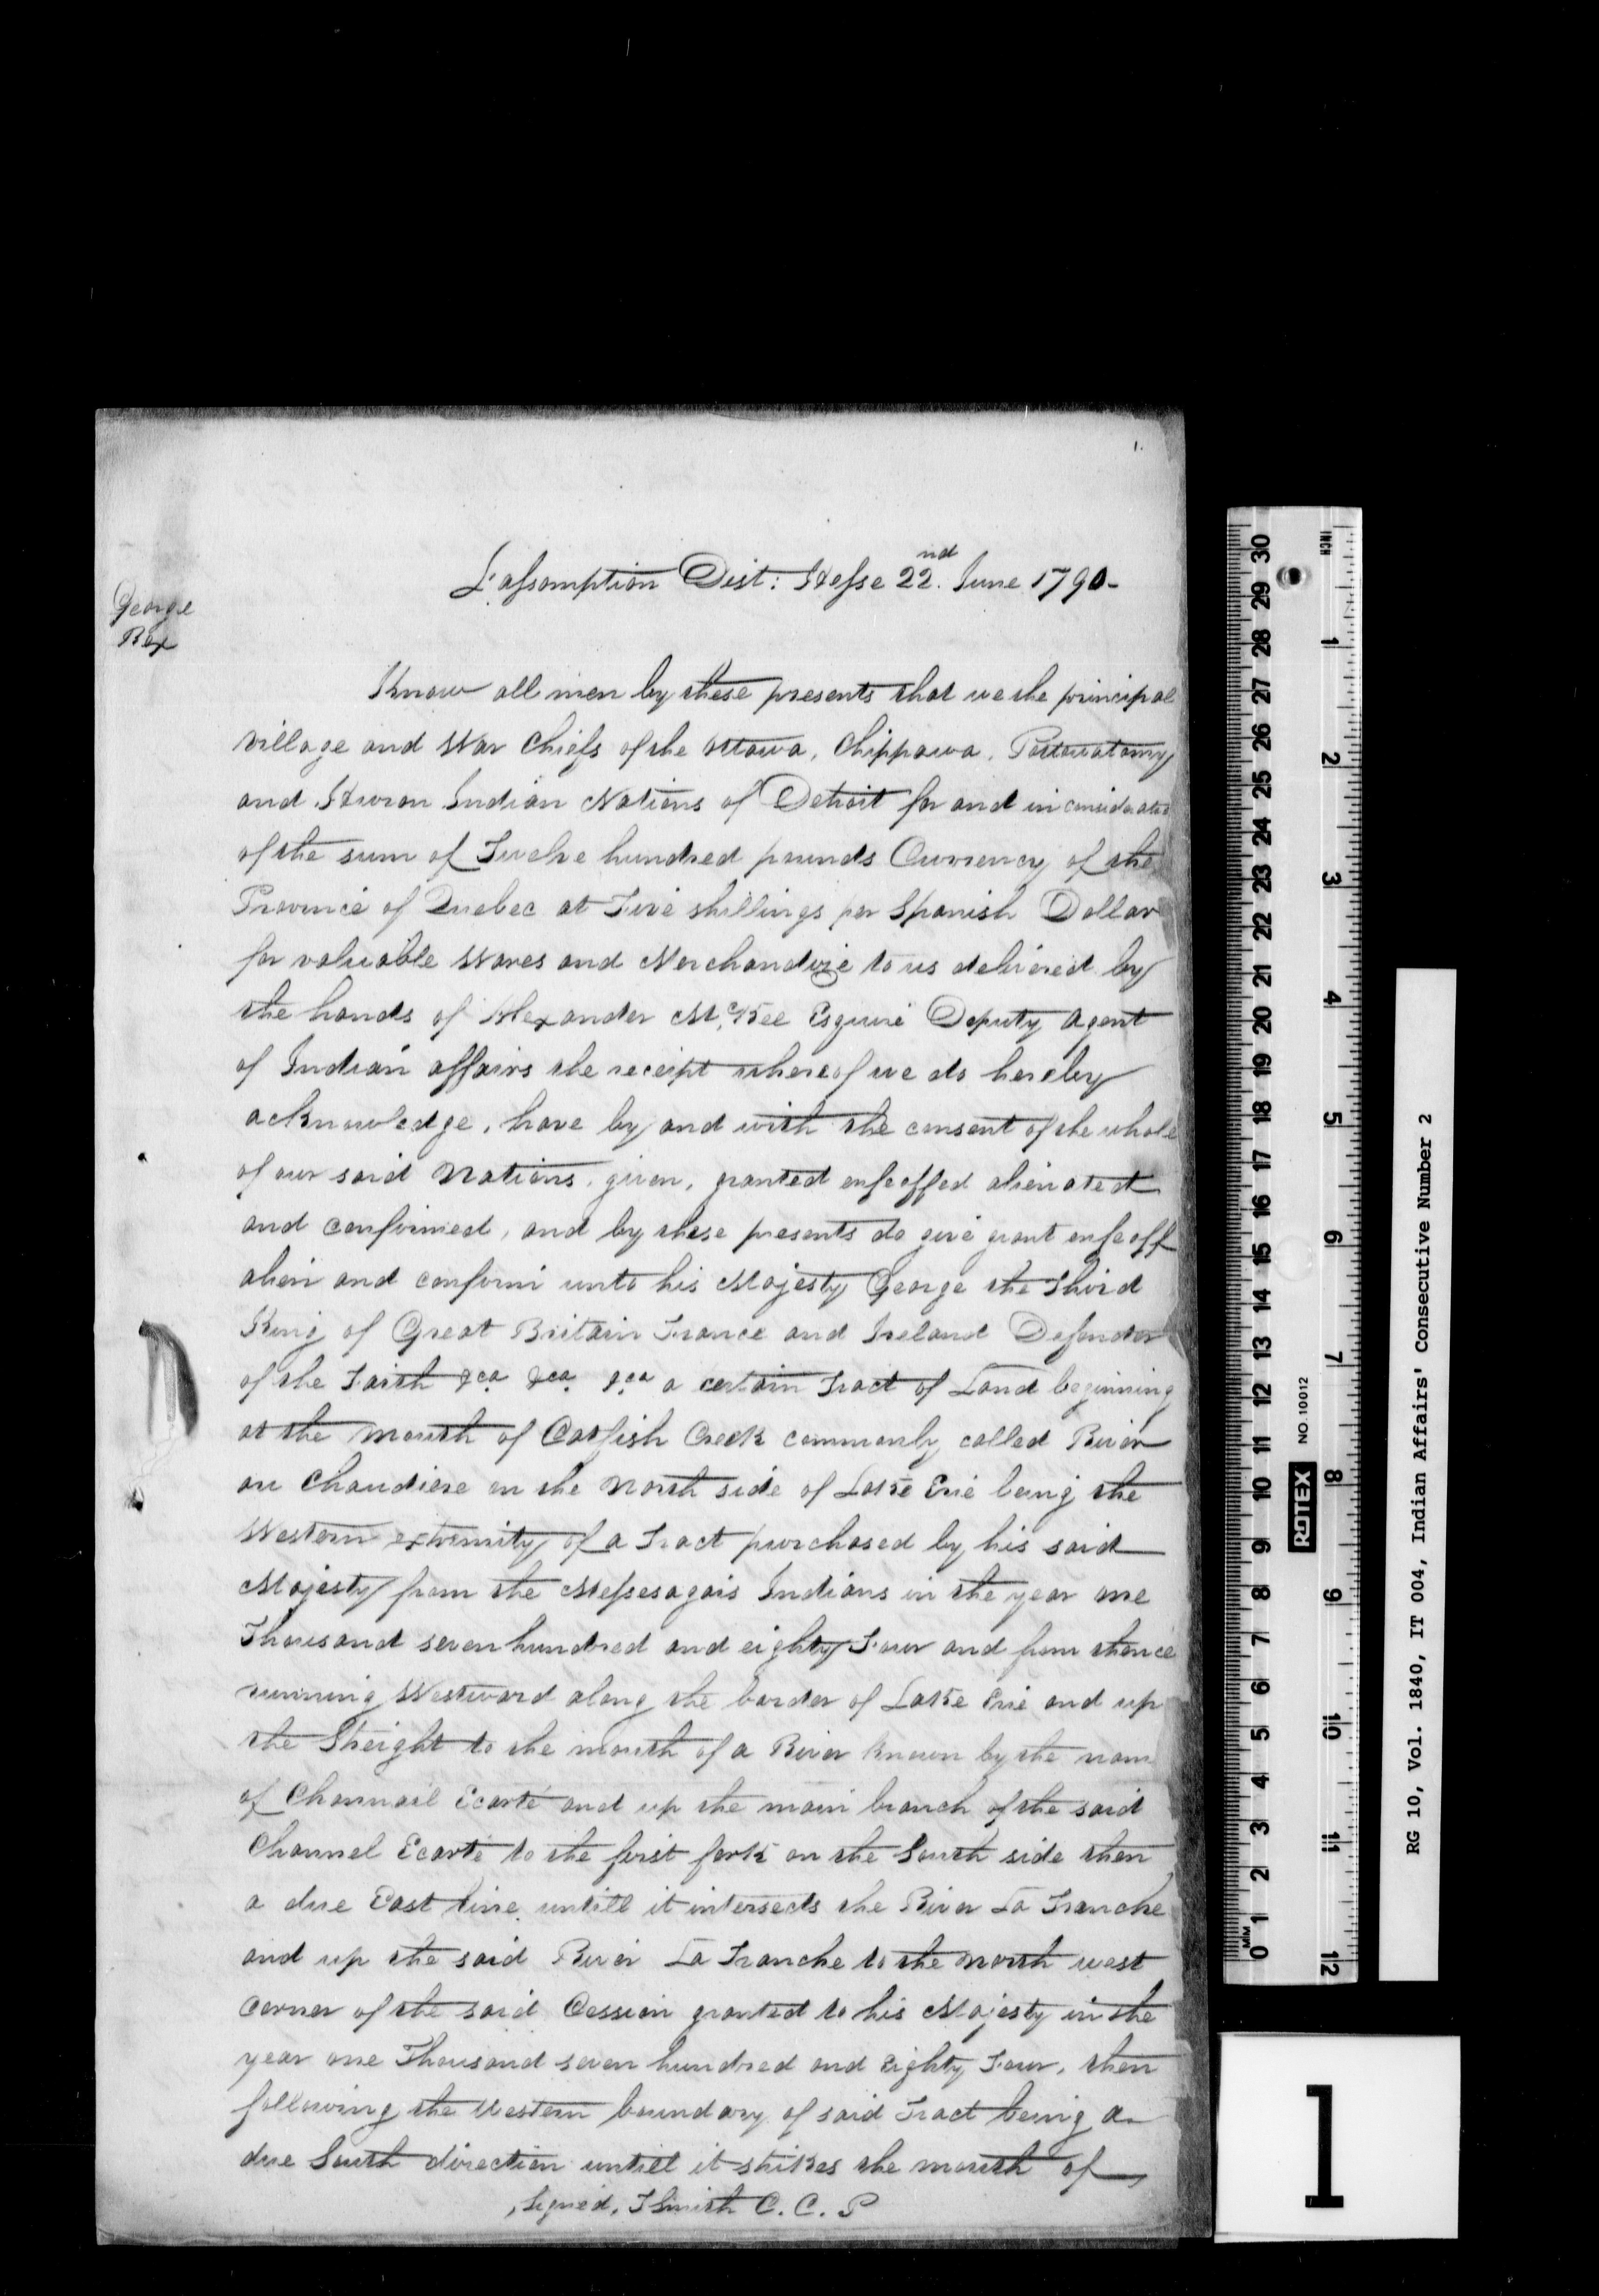 1.
L'assomption Dist: Hesse 22nd. June 1790-
George
Rex
Know all men by these presents that we the principal
Village and War Chiefs of the Ottawa, Chippawa, Pottowatomy
and Huron Indian Nations of Detroit for and in consideration
of the sum of Twelve hundred pounds Currency of the
Province of Quebec at Five shillings per Spanish Dollar
for valuable Wares and Merchandize to us delivered by
the hands of Alexander McKee Esquire Deputy Agent
of Indian affairs the receipt whereof we do hereby
acknowledge, have by and with the consent of the whole
of our said Nations, given, granted enfeoffed alienated
and confirmed, and by these presents do give grant enfeoff
alien and confirm unto his Majesty George the Third
King of Great Britain France and Ireland Defender
of the Faith &ca &ca &ca a certain Tract of Land beginning
at the mouth of Catfish Creek commonly called River
au Chaudiere on the North side of Lake Erie being the
Western extremity of a Tract purchased by his said
Majesty from the Messesagais Indians in the year one
Thousand seven hundred and eighty Four and from thence
running Westward along the border of Lake Erie and up
the Streight to the mouth of a River known by the name
of Channail Ecarté and up the main branch of the said
Channel Ecarté to the first fork on the South side then
a due East line untill it intersects the River La Tranche
and up the said River La Tranche to the North west
corner of the said Cession granted to his Majesty in the
year one Thousand seven hundred and Eighty Four, then
following the Western boundary of said Tract being a
due South direction untill it strikes the mouth of
Signed, T Smith C. C. P
INCH
1 2 3 4 5 6 7 8 9 10 11 12
30 29 28 27 26 25 24 23 22 21 20 19 18 17 16 15 14 13 12 11 10 9 8 7 6 5 4 3 2 1 0
MM
ROTEX NO. 10012
RG 10, Vol. 1840, IT 004, Indian Affairs' Consecutive Number 2
1